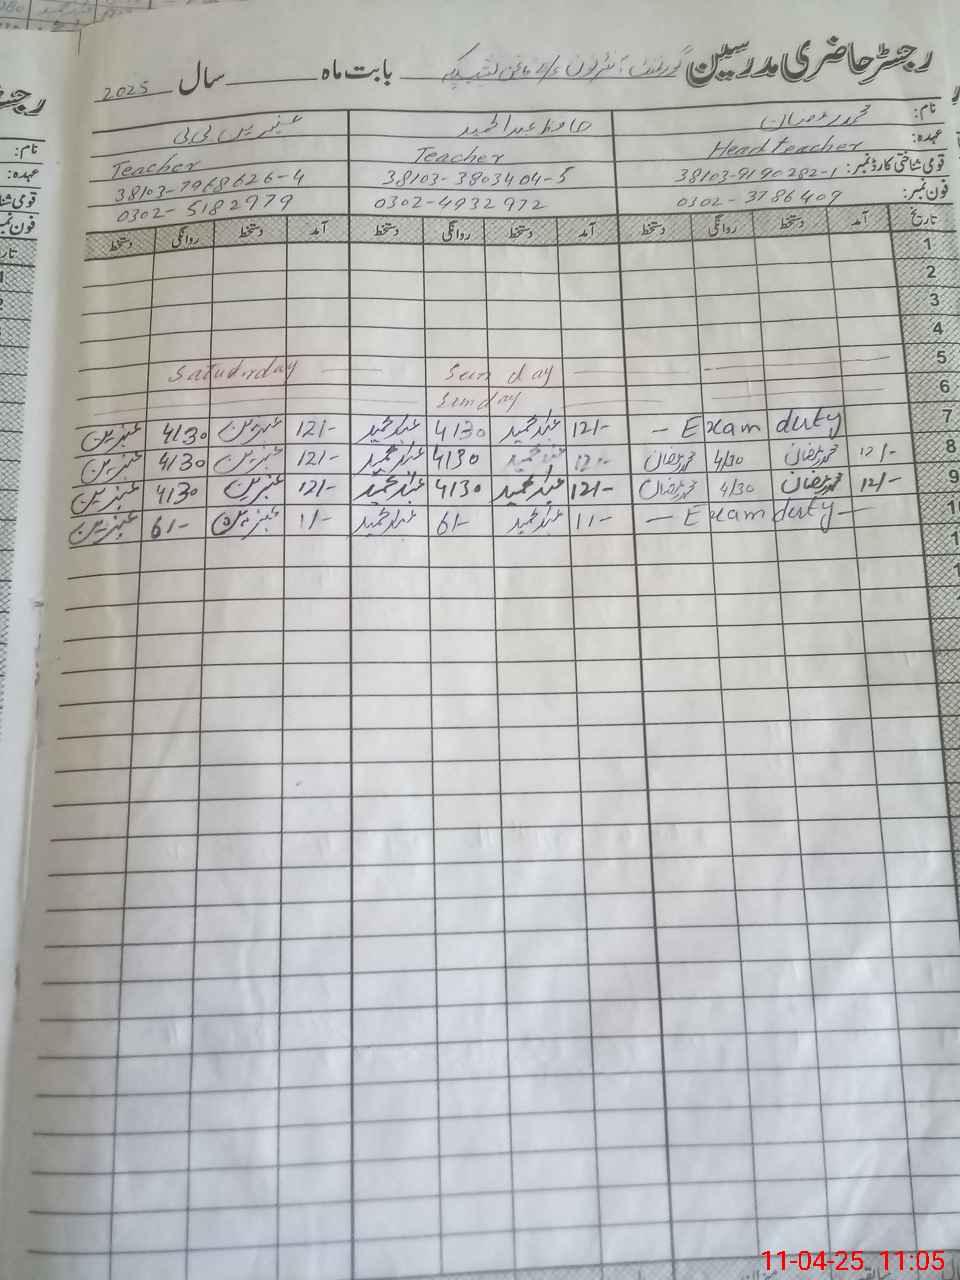 رجسٹر حاضری مدرسین گورنمنٹ بابت ماہ سال 2025
نام: محمد رمضان حافظ عبدالحمید عنبرین بی بی
عہدہ: Head teacher Teacher Teacher
قومی شناختی کارڈ نمبر: 38103-9190282-1 38103-3803404-5 38103-7968626-4
فون نمبر: 0302-3786409 0302-4932972 0302-5182979
تاریخ آمد دستخط روانگی دستخط آمد دستخط روانگی دستخط آمد دستخط روانگی دستخط
1
2
3
4
5 Sun day Satudrday
6 Sunday
7 - Exam duty 12/- عبدالحمید 4/30 عبدالحمید 12/- عنبرین 4/30 عنبرین
8 12/- محمد رمضان 4/30 محمد رمضان 12/- عبدالحمید 4/30 عبدالحمید 12/- عنبرین 4/30 عنبرین
9 12/- محمد رمضان 4/30 محمد رمضان 12/- عبدالحمید 4/30 عبدالحمید 12/- عنبرین 4/30 عنبرین
10 - Exam duty - 11- عبدالحمید 6/- عبدالحمید 1/- عنبرین 6/- عنبرین
11-04-25 11:05